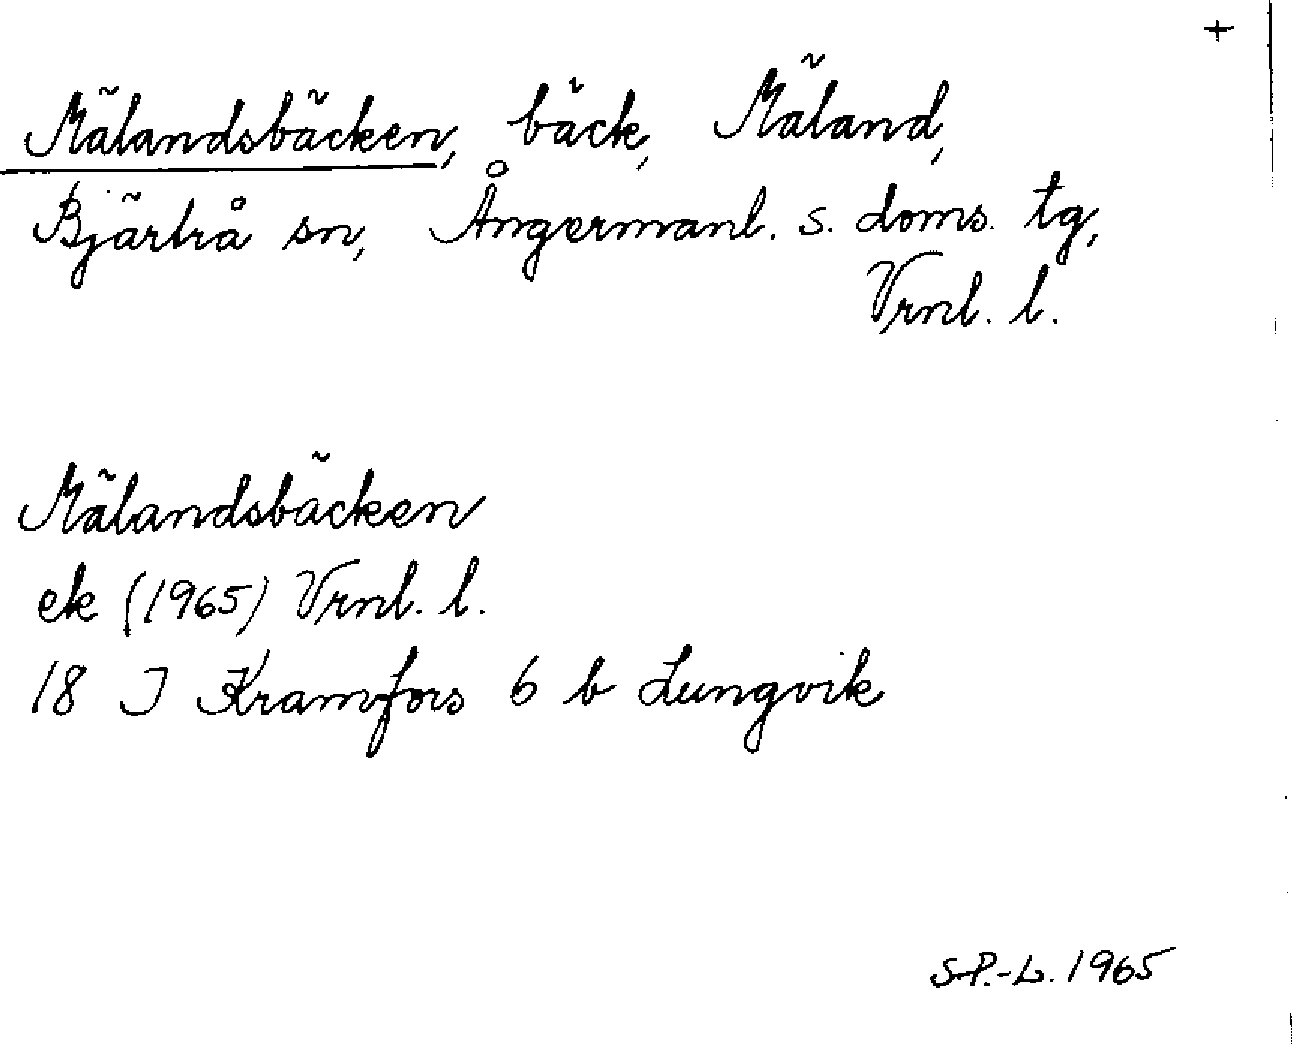 +
Mälandsbäcken, bäck, Mäland,
Bjärtrå sn, Ångermanl. s. doms. tg,
Vrnl. l.
Mälandsbäcken
ek (1965) Vrnl. l.
18 J Kramfors 6 b Lungvik
S.P.-L. 1965